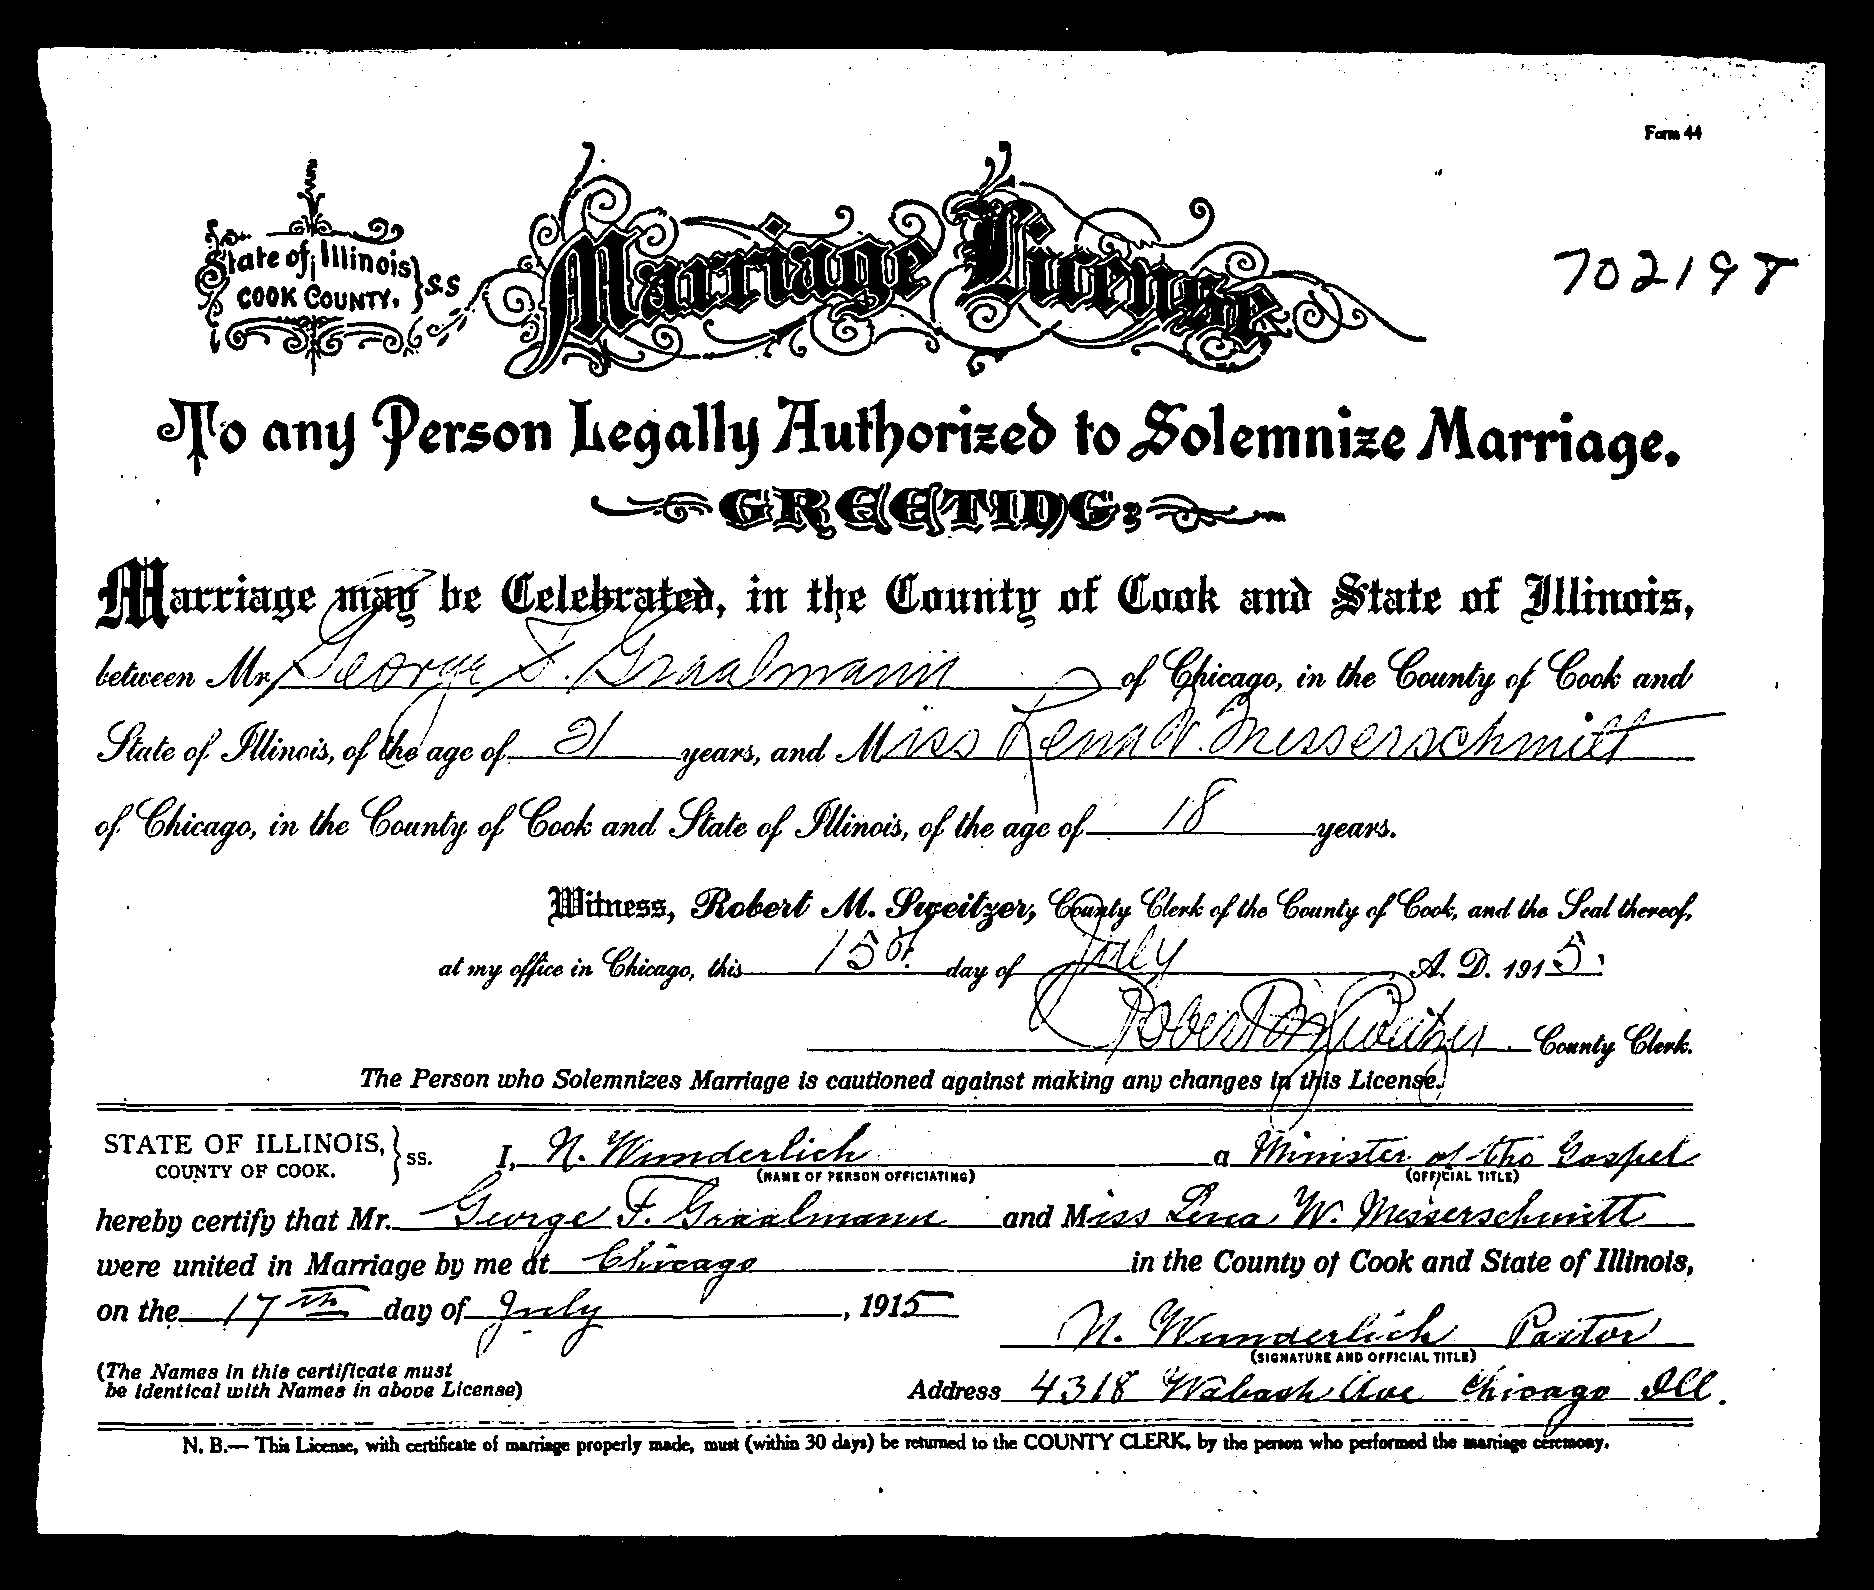 Form 44
State of Illinois } S.S
COOK COUNTY.
Marriage License
702198
To any Person Legally Authorized to Solemnize Marriage.
GREETING:
Marriage may be Celebrated, in the County of Cook and State of Illinois,
between Mr. George F. Graalmann of Chicago, in the County of Cook and
State of Illinois, of the age of 21 years, and Miss Lena W. Messerschmitt
of Chicago, in the County of Cook and State of Illinois, of the age of 18 years.
Witness, Robert M. Sweitzer, County Clerk of the County of Cook, and the Seal thereof,
at my office in Chicago, this 15th day of July A. D. 1915.
Robert M Sweitzer County Clerk.
The Person who Solemnizes Marriage is cautioned against making any changes in this License.
STATE OF ILLINOIS, } ss. I, N. Wunderlich a Minister of the Gospel
COUNTY OF COOK. (NAME OF PERSON OFFICIATING) (OFFICIAL TITLE)
hereby certify that Mr. George F. Graalmann and Miss Lena W. Messerschmitt
were united in Marriage by me at Chicago in the County of Cook and State of Illinois,
on the 17th day of July, 1915
N. Wunderlich Pastor
(SIGNATURE AND OFFICIAL TITLE)
(The Names in this certificate must
be identical with Names in above License)
Address 4318 Wabash Ave Chicago Ill.
N. B.— This License, with certificate of marriage properly made, must (within 30 days) be returned to the COUNTY CLERK, by the person who performed the marriage ceremony.